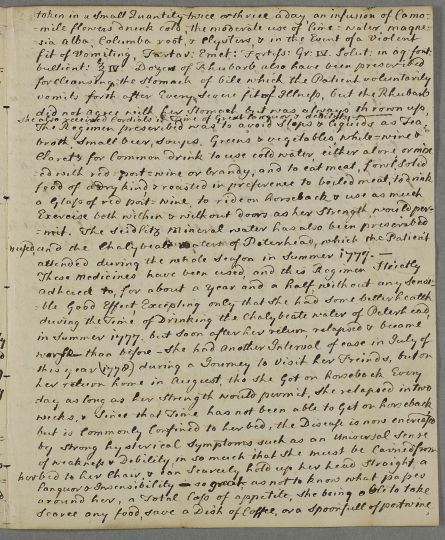 taken in a Small Quantity twice or thrice a day, an infusion of Camo=
mile flowers drunk Cold, the moderate use of lime water, magne=
sia Alba, Columba root, & Clysters & in the Event of a Violent
fit of Vomiting, Tartar: Emet: Gr: Solut: in aq: font:
bullient: Doses of Rhubarb also have been prescribed
for Cleansing the Stomach of bile which the Patient voluntarily
vomits forth after Every Severe fit of Illness, but the Rhubarb
did not agree with her Stomach but was always thrown up,
She also received Cordials in Time of Great languor & debility
The Regimen prescribed was to avoid Slops & Liquids as Tea,
broth, Small beer, Soups, Greens & vegitables white=wine &
Claret & for Common drink to use cold water, either alone or mix=
=ed with red=port=wine or brandy, and to eat meat, fowl Solid
food of a dry kind & roasted in preference to boiled meat, to drink
a Glass of red port=wine, to ride on horseback & use as much
Exercise both within & without doors as her Strength would per=
=mit. The Seidlitz Mineral water has also been prescribed
used and the Chalybeate waters of Peterhead, which the Patient
attended during the whole Season in Summer 1777. —
These medicines have been used, and this Regimen Strictly
adhered to, for about a year and a half without any Sensi=
ble Good Effect, Excepting only that she had some better health
during the Time of Drinking the Chalybeate water of Peterhead,
in Summer 1777, but soon after her return relapsed & became
worse than before — She had another Interval of ease in July of
this year (1778) during a Journey to Visit her Freinds, but on
her return home in August, tho she Got on horseback Every
day as long as her Strength would permit, she relapsed in two
weeks, & Since that Time has not been able to Get on horseback
but is Commonly Confined to her bed, the Disease is now encreased
by Strong hysterical Symptoms such as an Universal Sense
of weakness & Debility in so much that she must be Carried from
her bed to her Chair, & can Scarcely hold up her head Straight, a
languor & Insensibility — so great, as not to know what passes
around her, a Total Loss of appetite, she being able to take
Scarce any food save a Dish of Coffee, or a Spoonfull of portwine